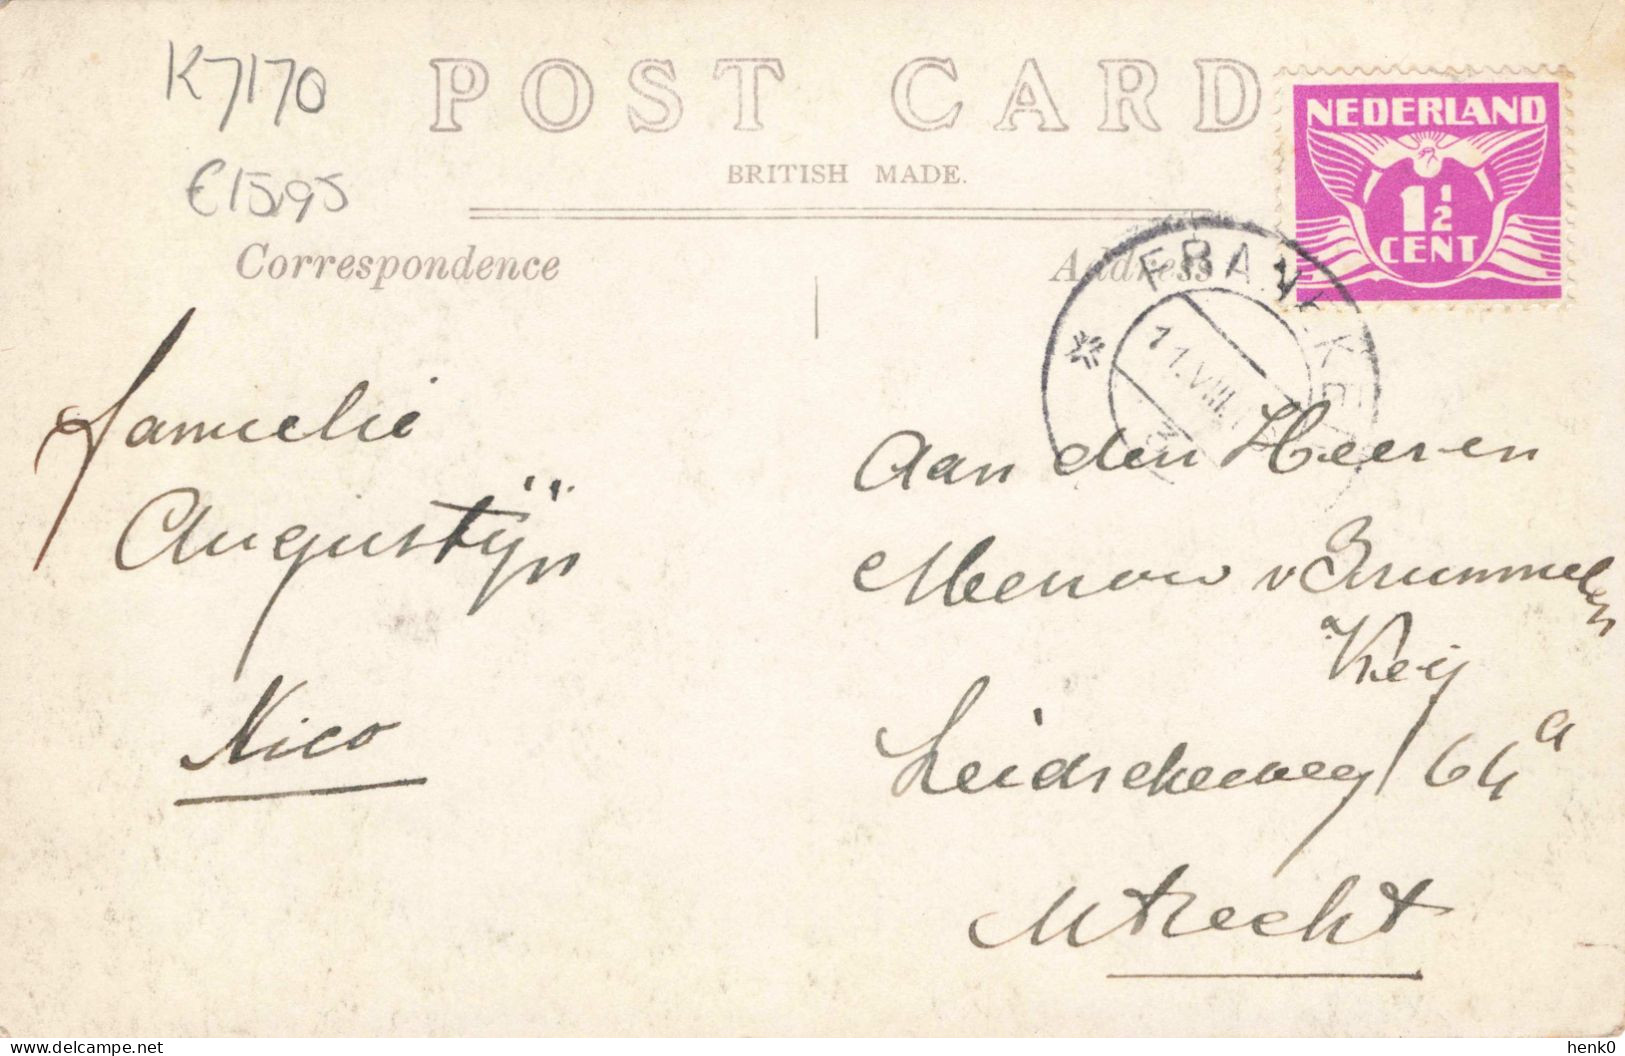 K7170
€15,95
POST CARD
BRITISH MADE.
Correspondence
Address
NEDERLAND
1 1/2
CENT
FRANEKER
11.VIII.
Familie
Augustijn
Nico
Aan den Heeren
v Brummelen
Key
Leidscheweg 64a
Utrecht
delcampe.net
henk0